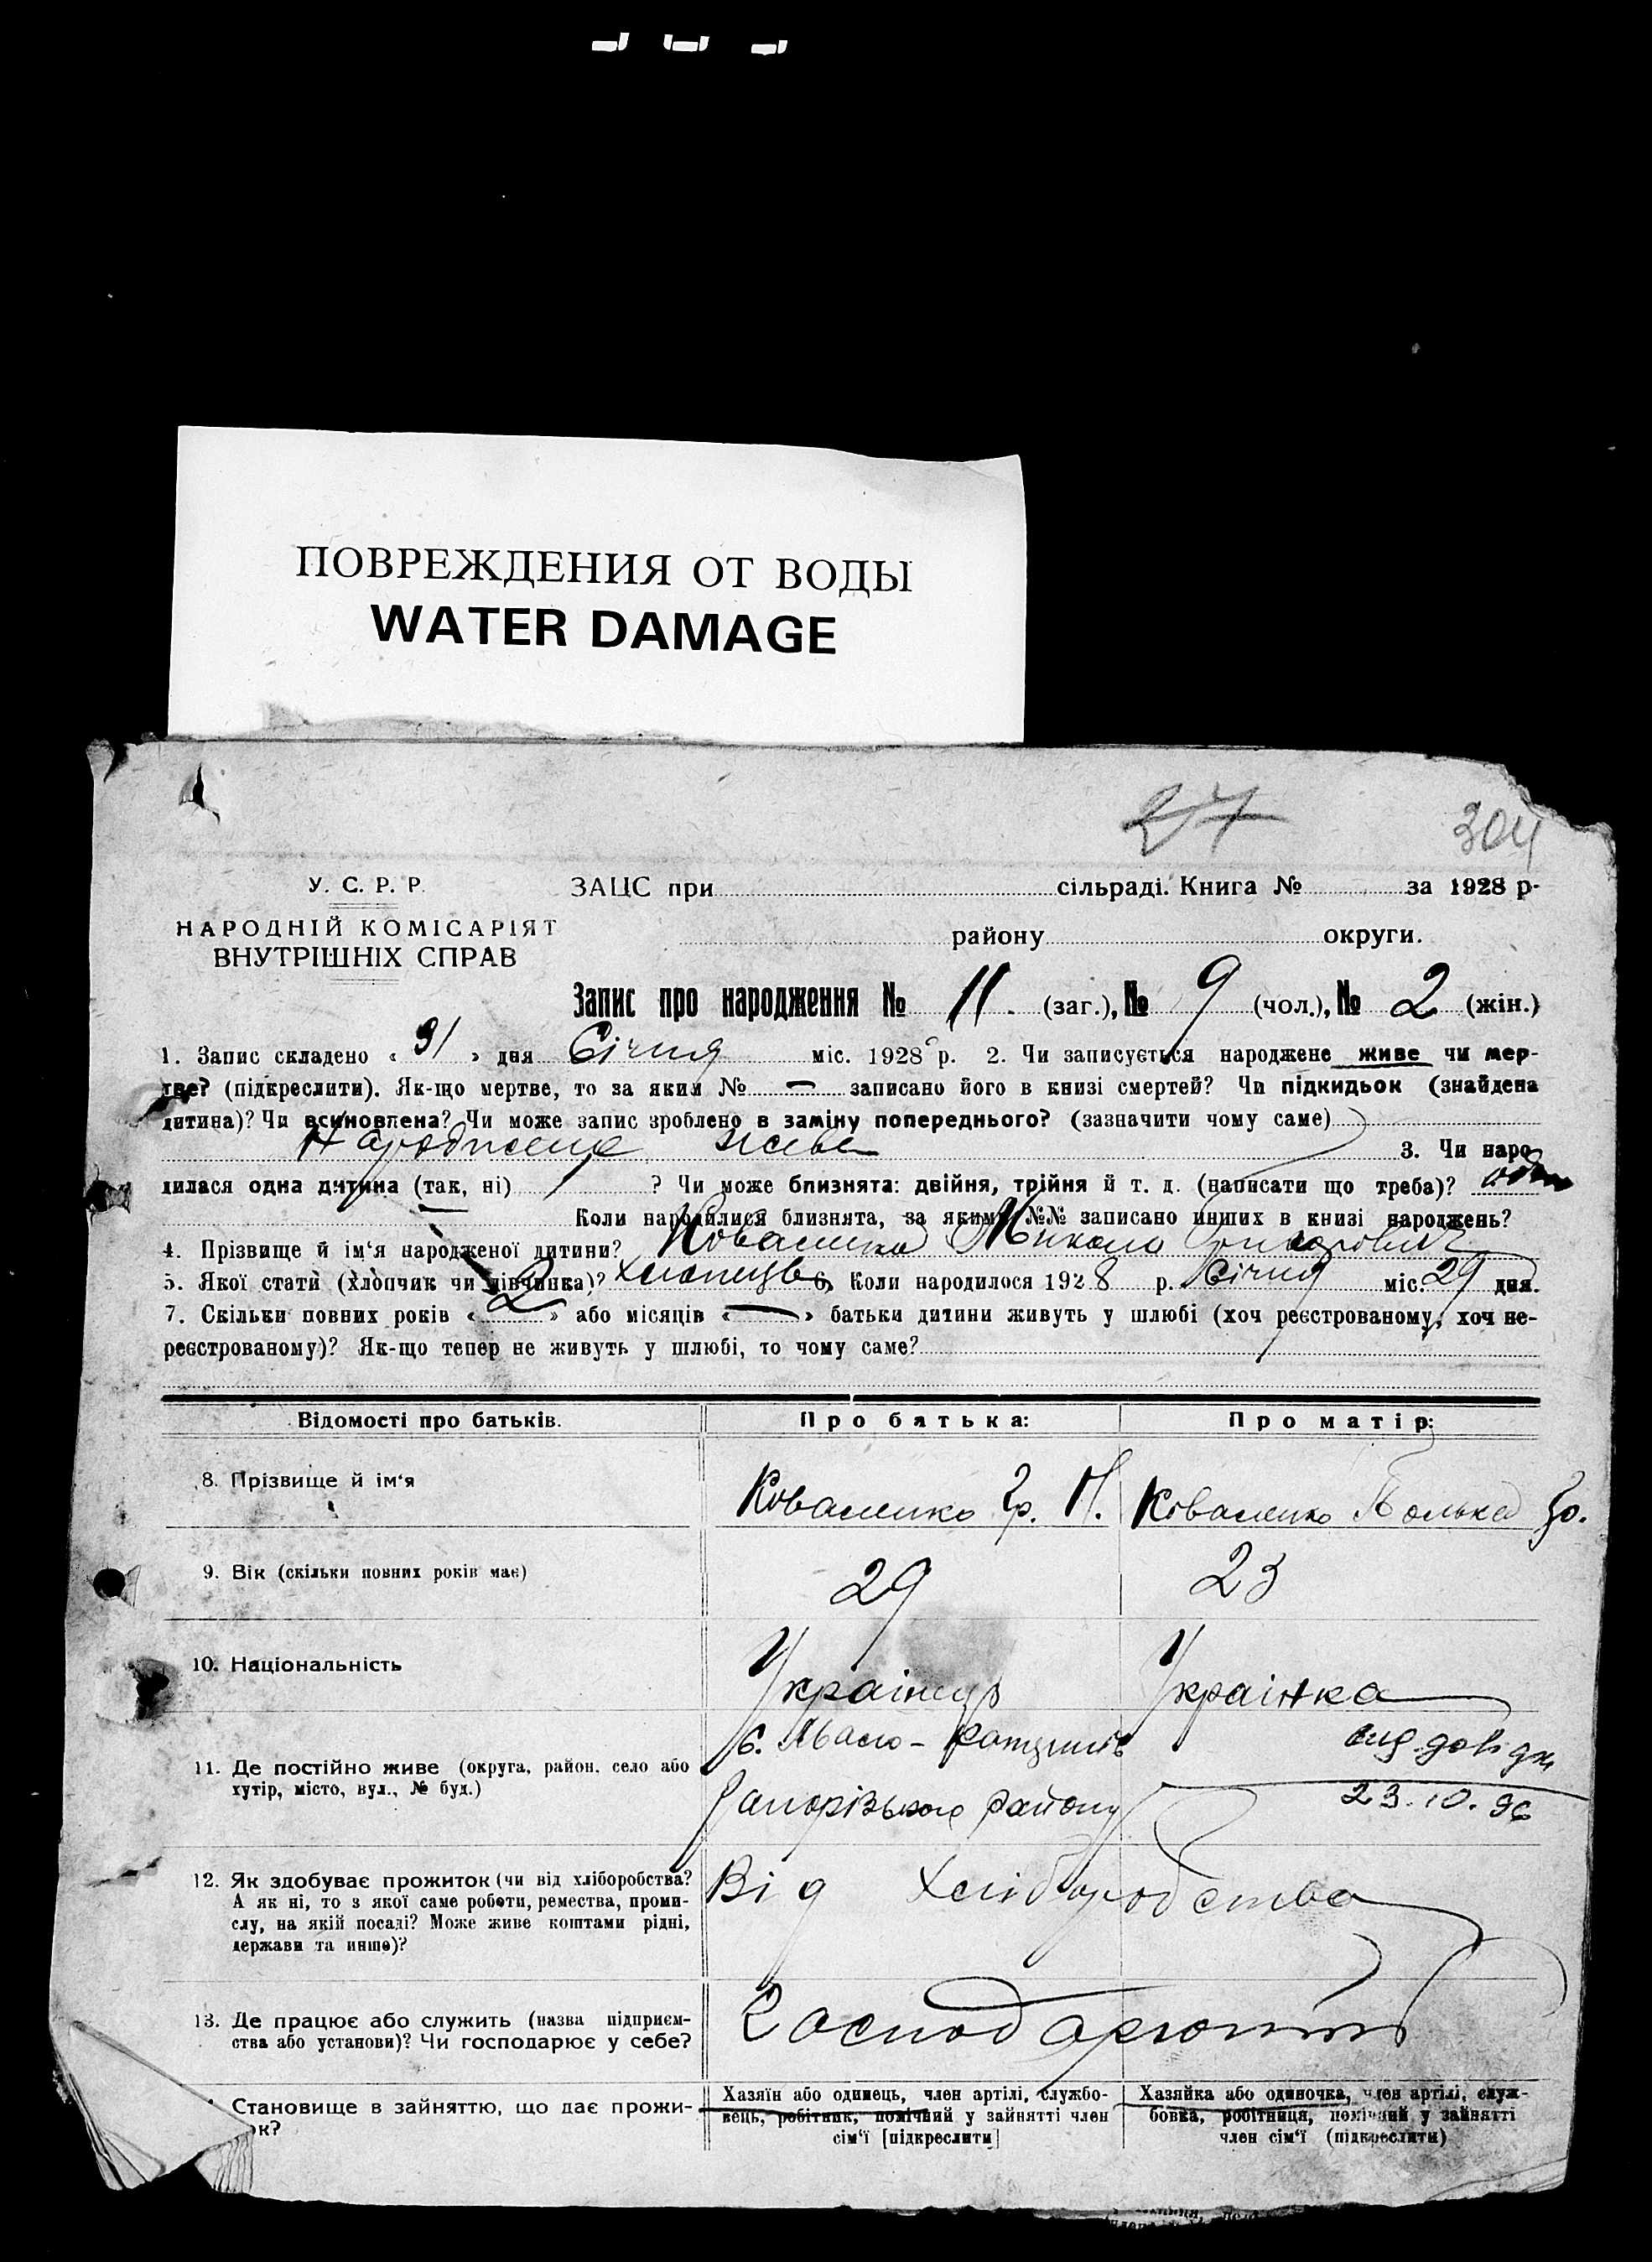 ПОВРЕЖДЕНИЯ ОТ ВОДЫ
WATER DAMAGE
27 304
У. С. Р. Р.
НАРОДНІЙ КОМІСАРІЯТ
ВНУТРІШНІХ СПРАВ
ЗАЦС при сільраді. Книга № за 1928 р.
району округи.
Запис про народження № 11 (заг.), № 9 (чол.), № 2 (жін.)
1. Запис складено « 31 » дня Січня міс. 1928 р. 2. Чи записується народжене живе чи мер-
тве? (підкреслити). Як-що мертве, то за яким № — записано його в книзі смертей? Чи підкидьок (знайдена
дитина)? Чи всиновлена? Чи може запис зроблено в заміну попереднього? (зазначити чому саме)
Народжене живе 3. Чи наро-
дилася одна дитина (так, ні) ? Чи може близнята: двійня, трійня й т. д. (написати що треба)?
Коли народилися близнята, за якими №№ записано инших в книзі народжень?
4. Прізвище й ім'я народженої дитини? Коваленко Микола Григорович
5. Якої стати (хлопчик чи дівчинка)? хлопець 6. Коли народилося 1928 р. Січня міс. 29 дня.
7. Скільки повних років « 2 » або місяців « — » батьки дитини живуть у шлюбі (хоч реєстрованому, хоч не-
реєстрованому)? Як-що тепер не живуть у шлюбі, то чому саме?
Відомості про батьків. Про батька: Про матір:
8. Прізвище й ім'я Коваленко Гр. П. Коваленко
9. Вік (скільки повних років має) 29 23
10. Національність Українець Українка
11. Де постійно живе (округа, район, село або
хутір, місто, вул., № буд.)
С. Мало-
Запорізького району
23.10.96
12. Як здобуває прожиток (чи від хліборобства?
А як ні, то з якої саме роботи, ремества, проми-
слу, на якій посаді? Може живе коштами рідні,
держави та инше)?
Від Хліборобства
13. Де працює або служить (назва підприєм-
ства або установи)? Чи господарює у себе?
Господарюють
Становище в зайняттю, що дає прожи-
ок?
Хазяїн або одинець, член артілі, службо-
вець, робітник, помічний у зайнятті член
сім'ї [підкреслити]
Хазяйка або одиночка, член артілі, служ-
бовка, робітниця, помічний у зайнятті
член сім'ї (підкреслити)